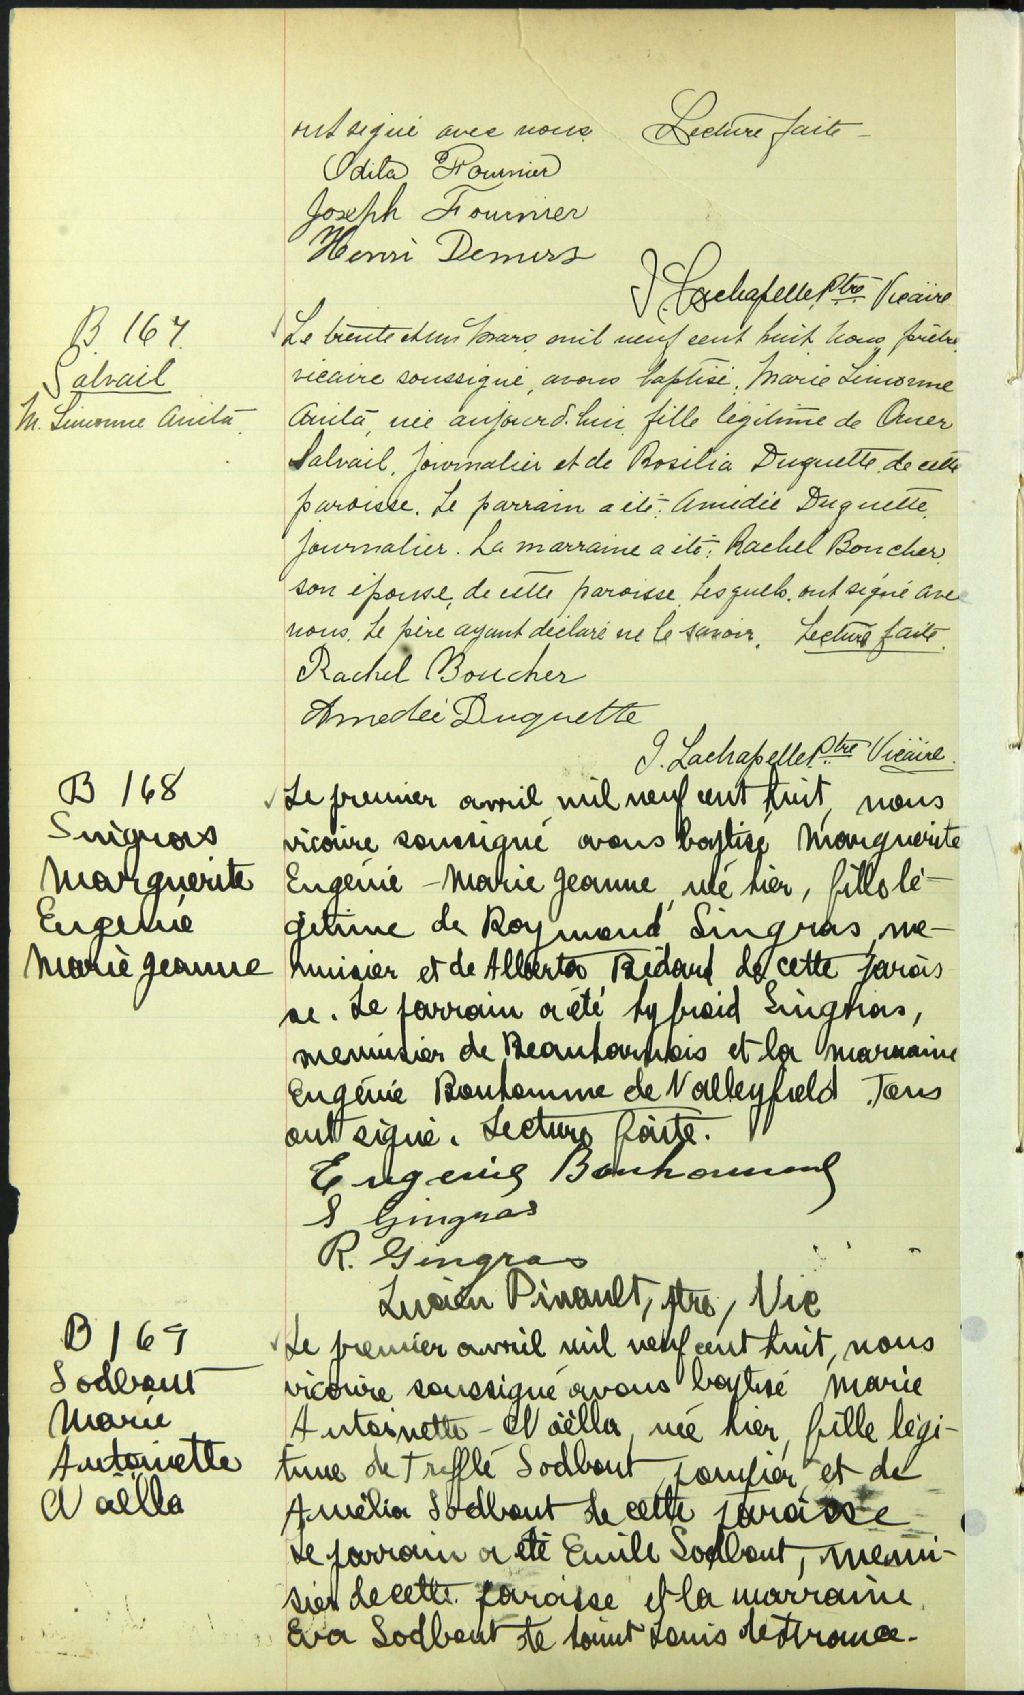 ont signé avec nous. Lecture faite -
Odila Fournier
Joseph Fournier
Henri Demers
J. Lachapelle, Ptre Vicaire
B. 167
Salvail
M. Simonne Anita
Le trente et un Mars mil neuf cent huit Nous prêtre
vicaire soussigné, avons baptisé, Marie Simonne
Anita, née aujourd'hui, fille légitime de Omer
Salvail, journalier et de Rosilia Duguette de cette
paroisse. Le parrain a été: Amédée Duguette,
journalier. La marraine a été: Rachel Boucher
son épouse, de cette paroisse. Lesquels ont signé avec
nous. Le père ayant déclaré ne le savoir. Lecture faite.
Rachel Boucher
Amedée Duguette
J. Lachapelle, Ptre Vicaire.
B 168
Singras
Marguerite
Eugenie
Marie Jeanne
Le premier avril mil neuf cent huit, nous
vicaire soussigné avons baptisé Marguerite
Eugénie - Marie Jeanne, née hier, fille lé-
gitime de Raymond Singras, me-
nuisier et de Alberta Bédard de cette parois
se. Le parrain a été Singras,
menuisier de Beauharnois et la marraine
Eugénie Bonhomme de Valleyfield. Tous
ont signé. Lecture faite.
Eugenie Bonhomme
S Gingras
R. Gingras
Lucien Pinault, ptre, Vic
B 169
Sodbout
Marie
Antoinette
Naëlla
Le premier avril mil neuf cent huit, nous
vicaire soussigné avons baptisé Marie
Antoinette - Naëlla, née hier, fille légi-
time de Trefflé Sodbout, pompier, et de
Amélia Sodbout de cette paroisse
Le parrain a été Emile Sodbout, menui-
sier de cette paroisse et la marraine
Eva Sodbout de saint Louis de France.